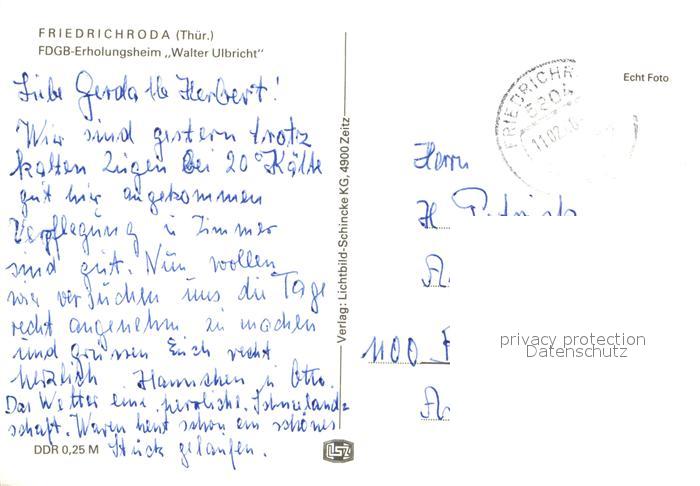 FRIEDRICHRODA (Thür.)
FDGB-Erholungsheim „Walter Ulbricht"
Liebe Gerda Herbert!
Wir sind gestern trotz
kalten Zügen bei 20° Kälte
gut hier angekommen
Verpflegung u Zimmer
sind gut. Nun wollen
wir versuchen uns die Tage
recht angenehm zu machen
und grüssen Euch recht
herzlich Hannchen u Otto.
Das Wetter eine herrliche Schneeland=
schaft. Waren heut schon ein schönes
Stück gelaufen.
DDR 0,25 M
Verlag: Lichtbild-Schincke KG, 4900 Zeitz
LSZ
Echt Foto
FRIEDRICHR
5804
11.02.
Herrn
H.
1100
privacy protection
Datenschutz